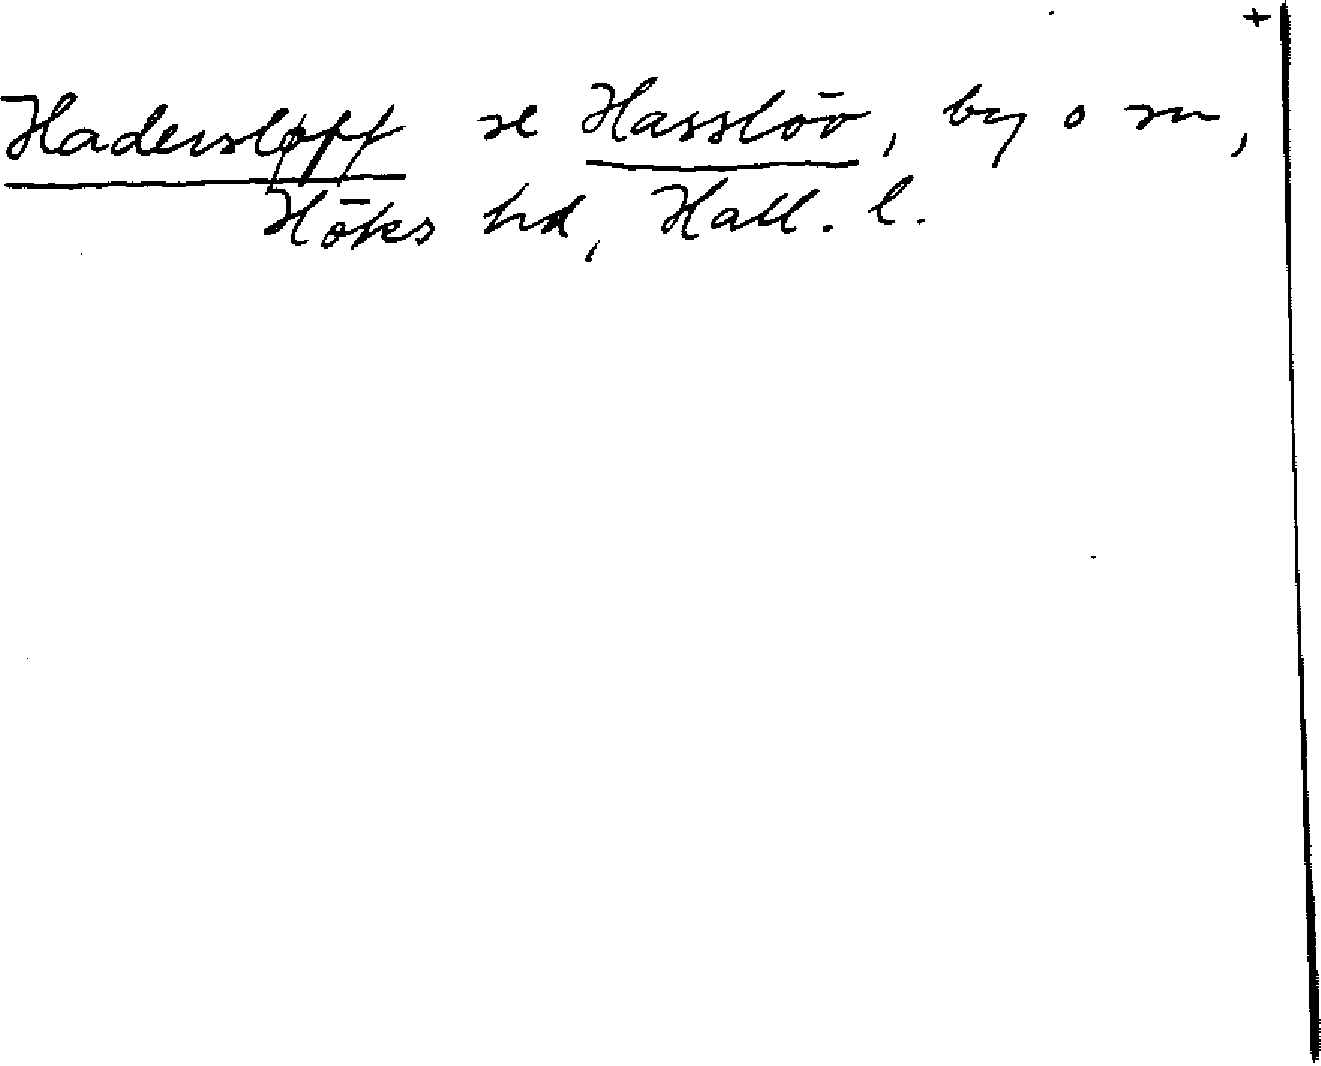 +
Hadersløff se Hasslöv, by o sn,
Höks hd, Hall. l.